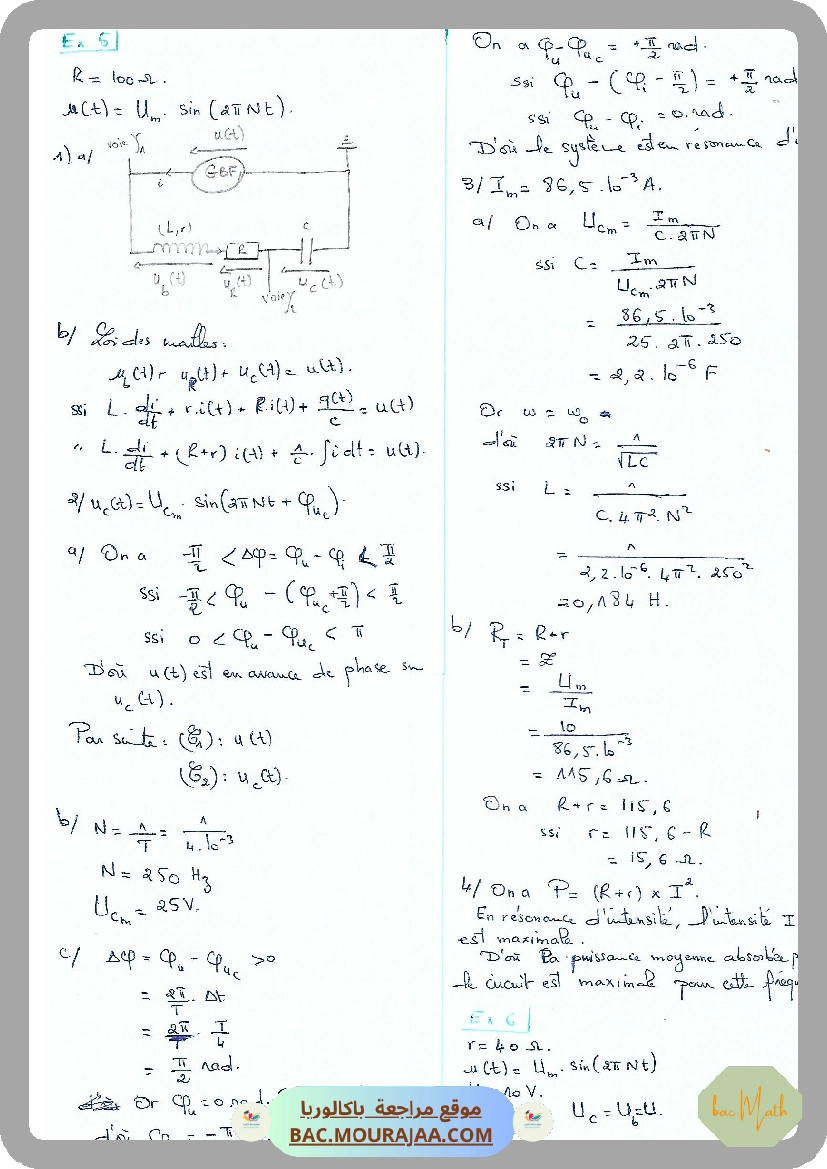 Ex 5
R = 100 Ω.
u(t) = Um. sin(2πNt).
1) a/
voie Y1
u(t)
GBF
i
(L,r)
R
C
ub(t)
uR(t)
voie Y2
uc(t)
b/ Loi des mailles:
ub(t) + uR(t) + uc(t) = u(t).
ssi L. di/dt + r.i(t) + R.i(t) + q(t)/c = u(t)
" L. di/dt + (R+r) i(t) + 1/c . ∫i dt = u(t).
2/ uc(t) = Ucm. sin(2πNt + φuc).
a/ On a -π/2 < Δφ = φu - φi < π/2
ssi -π/2 < φu - (φuc + π/2) < π/2
ssi 0 < φu - φuc < π
D'où u(t) est en avance de phase sur
uc(t).
Par suite: (C1): u(t)
(C2): uc(t).
b/ N = 1/T = 1/4.10⁻³
N = 250 Hz
Ucm = 25V.
c/ Δφ = φu - φuc > 0
= 2π/T . Δt
= 2π/T . T/4
= π/2 rad.
Or φu = 0 rad.
d'où
On a φu - φuc = +π/2 rad.
ssi φu - (φi - π/2) = +π/2 rad
ssi φu - φi = 0. rad.
D'où le système est en résonance d'i
3/ Im = 86,5.10⁻³ A.
a/ On a Ucm = Im/C.2πN
ssi C = Im/Ucm.2πN
= 86,5.10⁻³/25.2π.250
= 2,2.10⁻⁶ F
Or w = w0
d'où 2πN = 1/√LC
ssi L = 1/C.4π².N²
= 1/2,2.10⁻⁶.4π².250²
= 0,184 H.
b/ RT = R+r
= Z
= Um/Im
= 10/86,5.10⁻³
= 115,6 Ω.
On a R+r = 115,6
ssi r = 115,6 - R
= 15,6 Ω.
4/ On a P = (R+r) x I².
En résonance d'intensité, l'intensité I
est maximale.
D'où la puissance moyenne absorbée p
le circuit est maximale pour cette fréqu
Ex 6
r = 40 Ω.
u(t) = Um. sin(2πNt)
10 V.
Uc = Ub = U.
موقع مراجعة باكالوريا
BAC.MOURAJAA.COM
bac Math